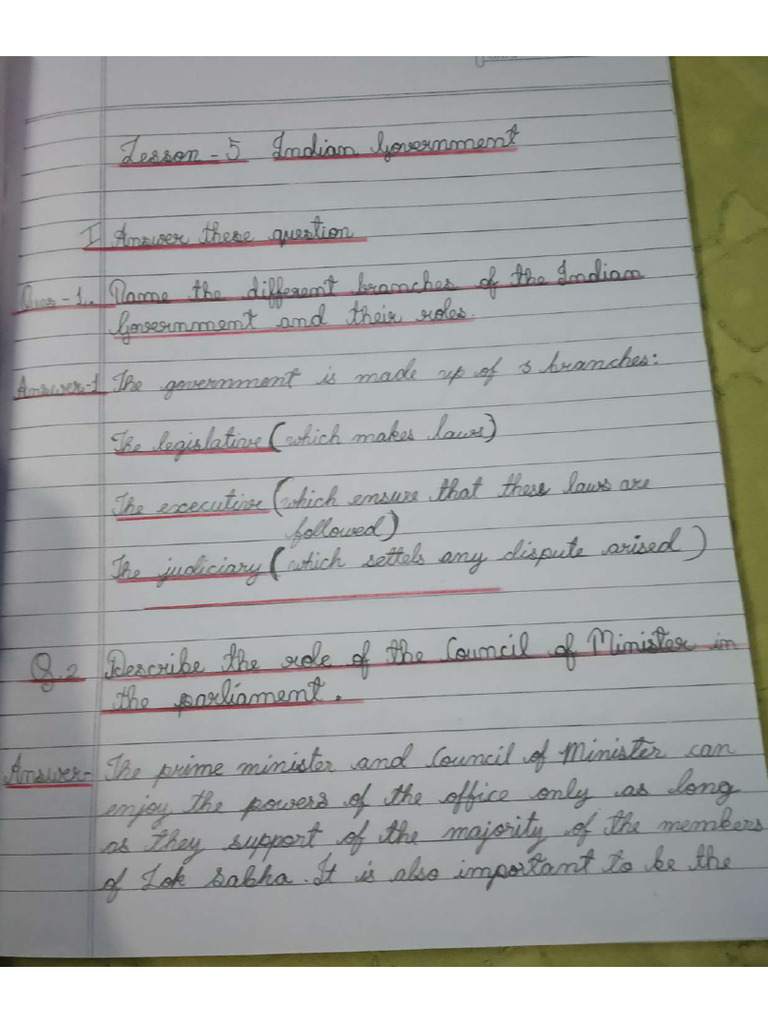 Lesson - 5 Indian Government
I Answer these question
Ques - 1. Name the different branches of the Indian
Government and their roles.
Answer-1 The government is made up of 3 branches:
The legislative (which makes laws)
The executive (which ensure that these laws are
followed)
The judiciary (which settels any dispute arised)
Q.2 Describe the role of the Council of Minister in
the parliament.
Answer- The prime minister and Council of Minister can
enjoy the powers of the office only as long
as they support of the majority of the members
of Lok Sabha. It is also important to be the